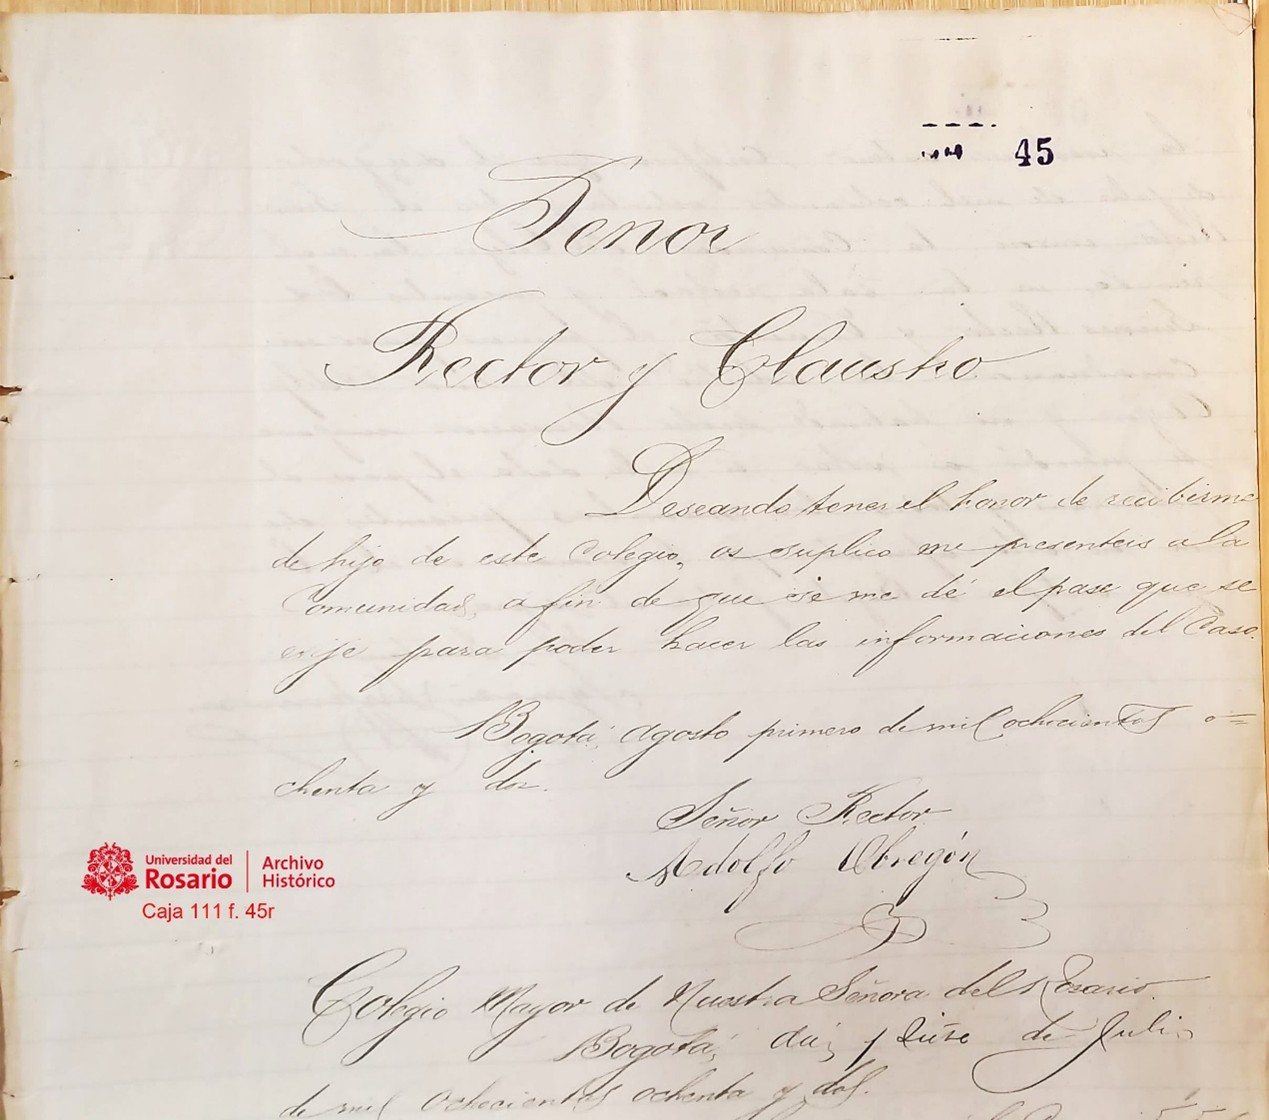 45
Senor
Rector y Claustro
Deseando tener el honor de recibirme
de hijo de este Colegio, os suplico me presenteis a la
Comunidad, a fin de que se me dé el pase que se
exije para poder hacer las informaciones del Caso.
Bogotá, Agosto primero de mil ochocientos o=
chenta y dos.
Señor Rector
Adolfo Obregón
Universidad del Rosario
Archivo Histórico
Caja 111 f. 45r
Colegio Mayor de Nuestra Señora del Rosario.
Bogotá, de Julio
de mil ochocientos ochenta y dos.